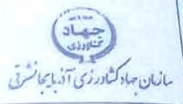 جهاد
کشاورزی
سازمان جهاد کشاورزی آذربایجانشرقی